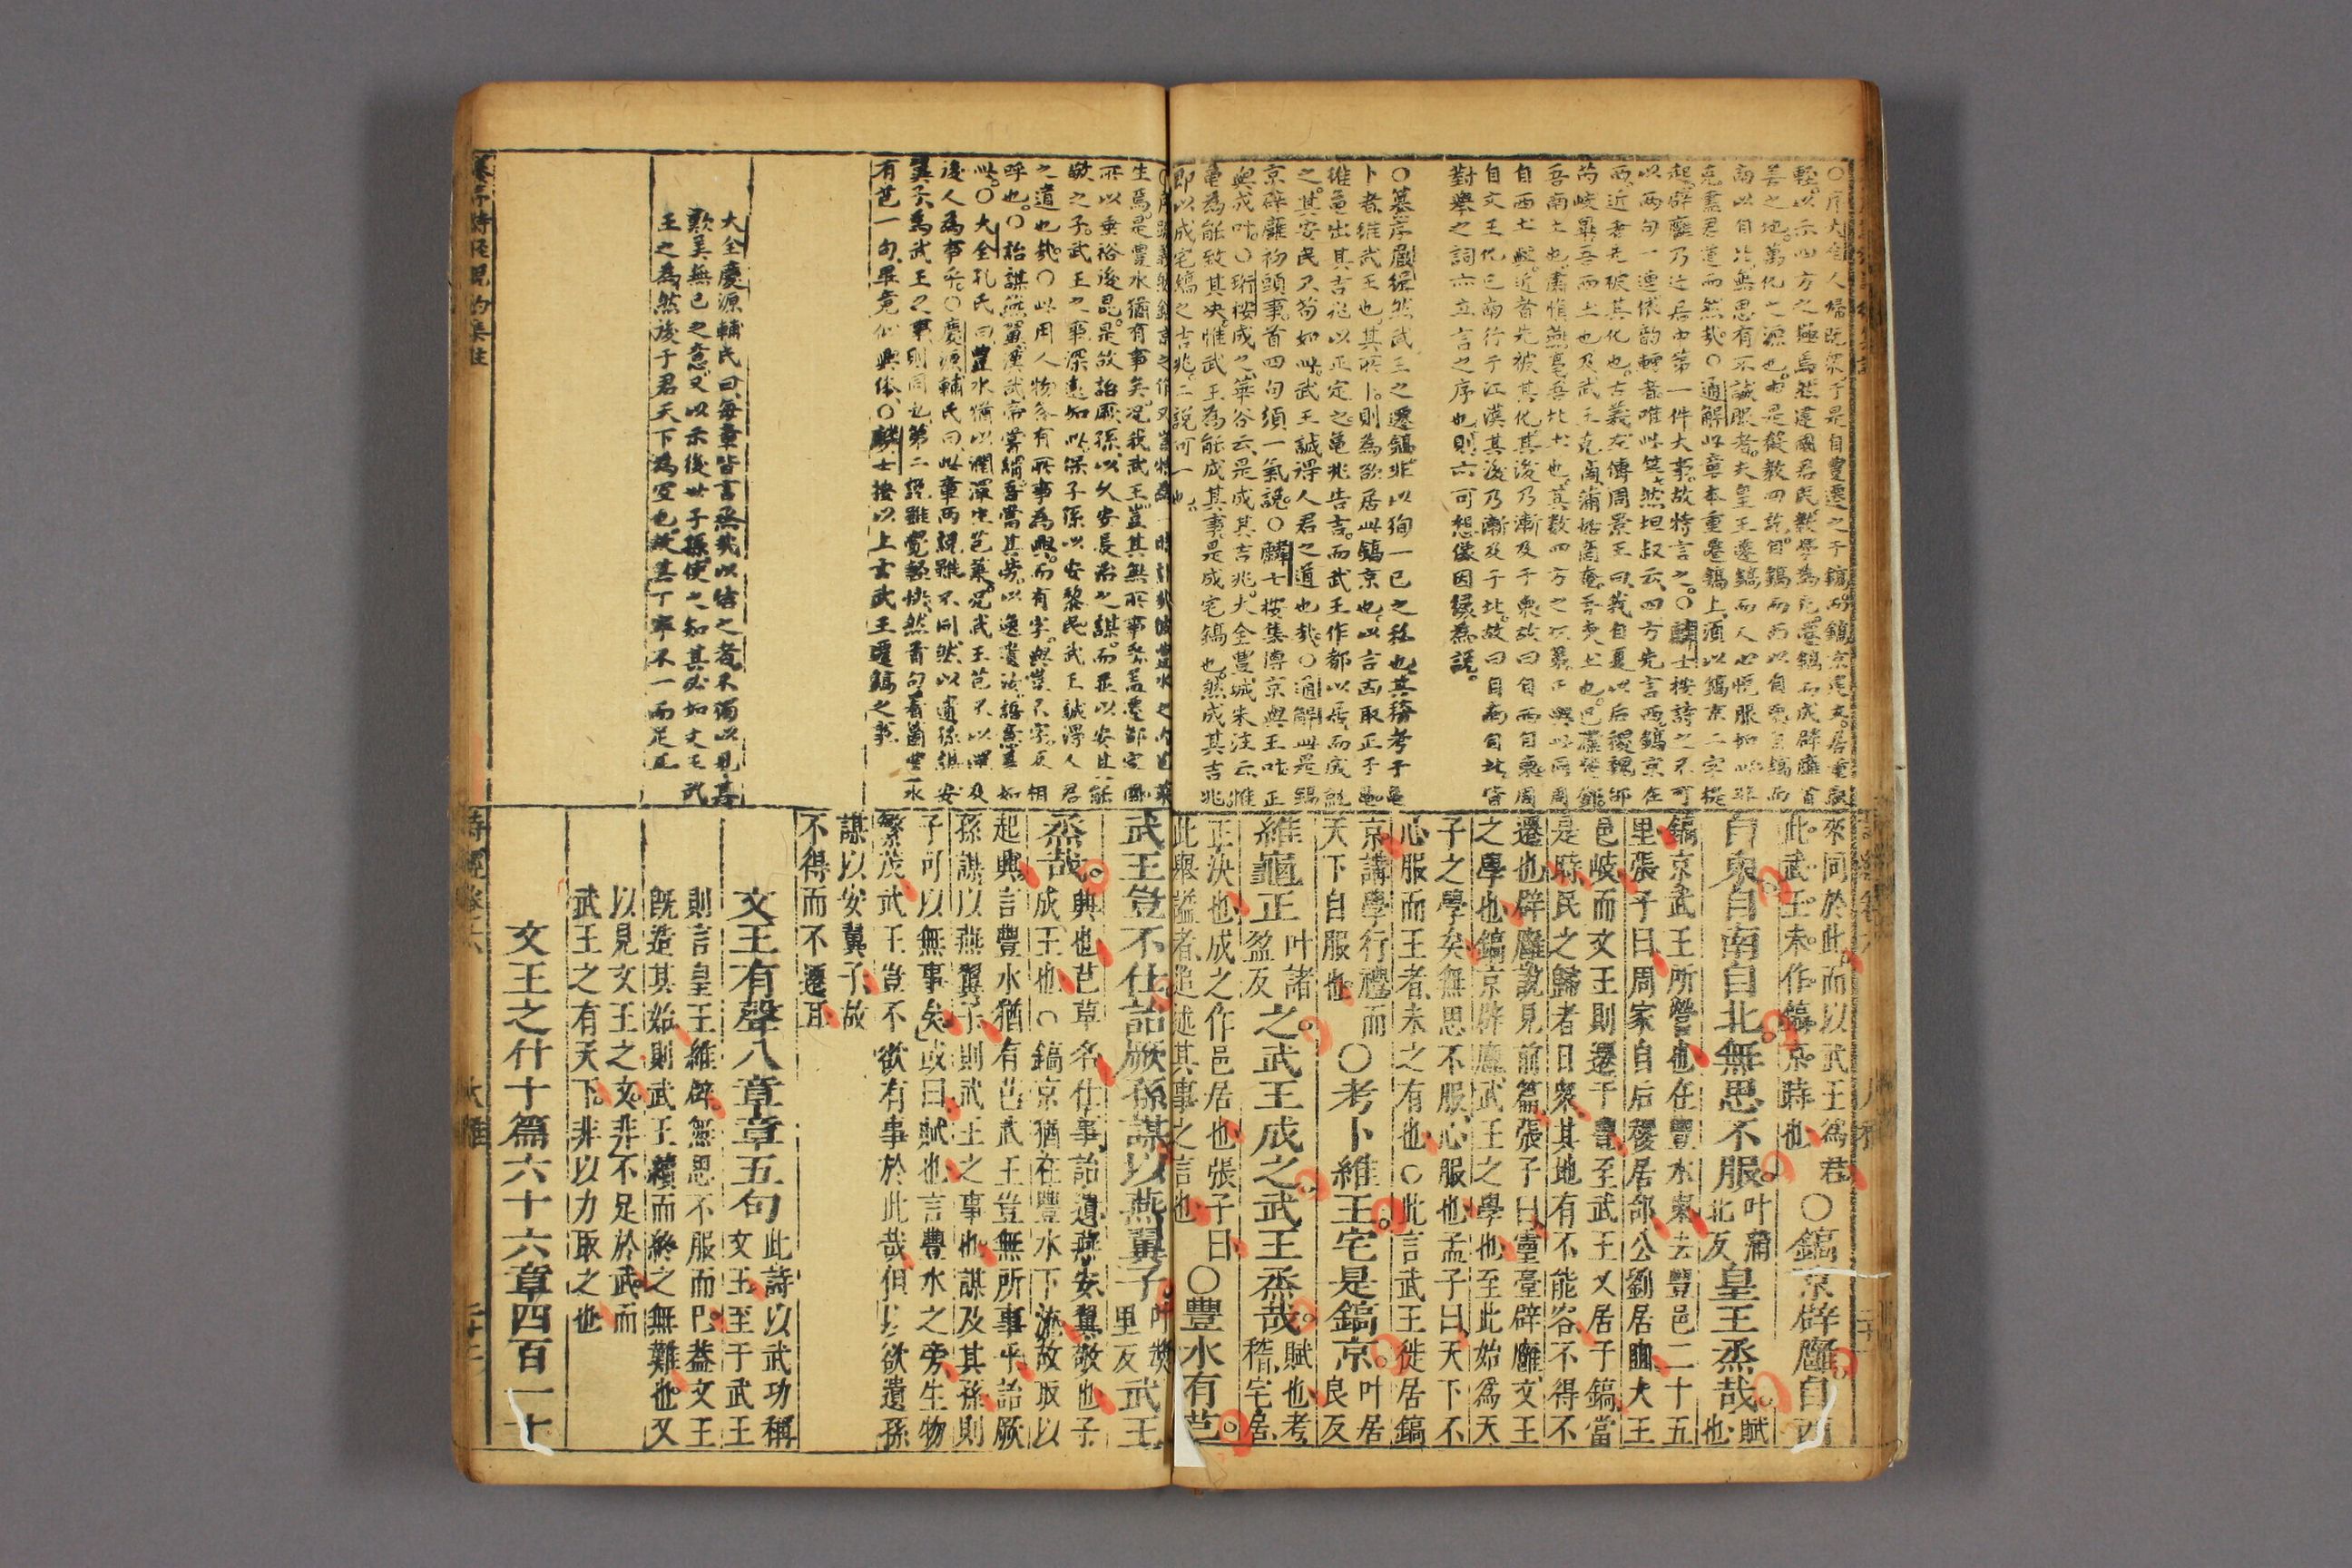 輊以示四方之極焉然建國君民教學為先遷鎬而成辟廱首
善之地萬化之源也由是聲教四訖自鎬而西以自東自鎬而
南以自北無思有不誠服者大皇王遷鎬而人心悅服如此非
克盡君道而然哉○通解此章本重遷鎬上須以鎬京二字提
起辟廱乃遷居中第一件大事故特言之○麟士按詩之不可
以兩句一連依韵轉者唯此等然坦叔云四方先言西鎬京在
西近者先被其化也古義左傳周景王曰我自夏以后稷魏邰
芮岐畢吾西土也及武王克商蒲姑商奄吾東土也巴濮楚鄧
吾南土也肅慎燕亳吾北土也其數四方之次第正與此同周
自西土興近者先被其化其後乃漸及于東故曰自西自東周
自文王化已南行于江漢其後乃漸及于北故曰自南自北皆
對舉之詞亦立言之序也則亦可想像因緣為說
卜者維武王也其所卜則為欲居此鎬京也以言古取正于龜
維龜出其吉兆以正定之龜兆告吉而武王作都以居而成就
之其安民又茍如此武王誠得人君之道也哉○通解此是錫
京辟廱初頭事首四句須一氣說○麟士按集傳京與王叶正
與成叶○珩按成之華谷云是成其吉兆大全豐城朱注云惟
龜為能致其决惟武王為能成其事是成宅鎬也然成其吉兆
即以成宅鎬之吉兆二說可一也
來同於此而以武王為君
此武王未作鎬京時也
○鎬京辟廱自西
自東自南自北無思不服
叶蒲
北反
皇王烝哉
賦
也
鎬京武王所營也在豐水東去豐邑二十五
里張子曰周家自后稷居邰公劉居豳大王
邑岐而文王則遷于豐至武王又居于鎬當
是時民之歸者日衆其地有不能容不得不
遷也辟廱說見前篇張子曰靈臺辟廱文王
之學也鎬京辟廱武王之學也至此始爲天
子之學矣無思不服心服也孟子曰天下不
心服而王者未之有也○此言武王徙居鎬
京講學行禮而
天下自服也
○考卜維王宅是鎬京
叶居
良反
維龜正
叶諸
盈反
之武王成之武王烝哉
賦也考
稽宅居
正決也成之作邑居也張子曰
此舉謚者追述其事之言也
○豐水有芑
生焉是豐水猶有事矣况我武王豈其無所事哉盖遷都定國
所以垂裕後昆是故詒厥孫以久安長治之謀而並以安其能
敬之子武王之事深遠如此保子孫以安黎民武王誠得人君
之道也哉○此用人物各有所事為興而有字與豈不字反相
呼也○詒謀燕翼漢武帝嘗謂吾當其勞以逸遺汝語意甚如
此○大全孔氏曰豐水猶以潤澤生芑菜况武王豈不以澤及
後人為事乎○慶源輔氏曰此章兩說雖不同然以遺孫謀安
翼子為武王之事則同也第二說雖覺輕快然首句著箇豐水
有芑一句畢竟似興体○麟士按以上言武王遷鎬之事
大全慶源輔氏曰每章皆言烝哉以結之者不獨以見其
歎美無已之意又以示後世子孫使之知其必如文王武
王之為然後于君天下為宜也故其丁寧不一而足云
武王豈不仕詒厥孫謀以燕翼子
叶獎
里反
武王
烝哉
興也芑草名仕事詒遺燕安翼敬也子
成王也○鎬京猶在豐水下流故取以
起興言豐水猶有芑武王豈無所事乎詒厥
孫謀以燕翼子則武王之事也謀及其孫則
子可以無事矣或曰賦也言豐水之旁生物
繁茂武王豈不欲有事於此哉但以欲遺孫
謀以安翼子故
不得而不遷耳
文王有聲八章章五句
此詩以武功稱
文王至于武王
則言皇王維辟無思不服而已葢文王
旣造其始則武王續而終之無難也又
以見文王之文非不足於武而
武王之有天下非以力取之也
文王之什十篇六十六章四百一十
詩經卷六
大雅